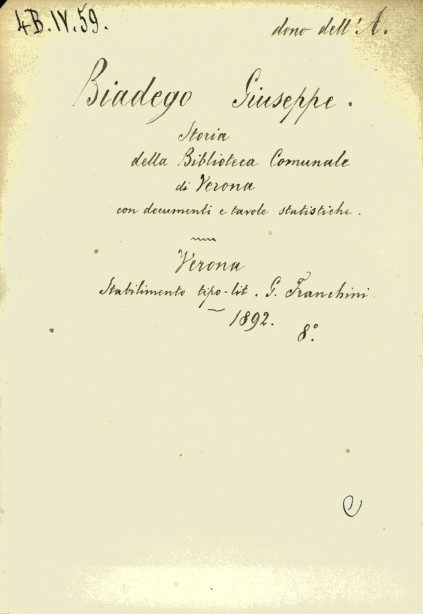 4B.IV.59.
dono dell'A.
Biadego Giuseppe.
Storia
della Biblioteca Comunale
di Verona
con documenti e tavole statistiche.
Verona
Stabilimento tipo-lit. G. Franchini
1892.
8°.